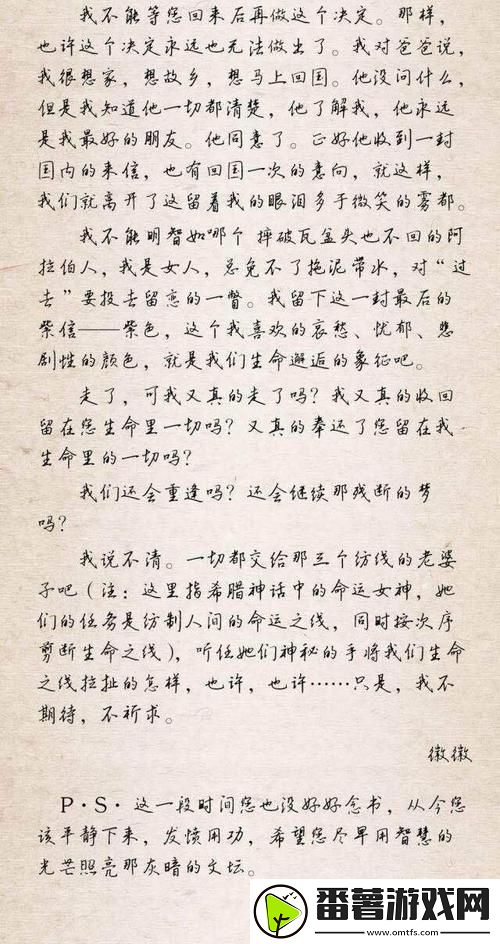 我不能等您回来后再做这个决定。那样，
也许这个决定永远也无法做出了。我对爸爸说，
我很想家，想故乡，想马上回国。他没问什么，
但是我知道他一切都清楚，他了解我，他永远
是我最好的朋友。他同意了。正好他收到一封
国内的来信，也有回国一次的意向，就这样，
我们就离开了这留着我的眼泪多于微笑的雾都。
我不能明智如哪个 摔破瓦盆头也不回的阿
拉伯人，我是女人，总免不了拖泥带水，对“过
去”要投去留恋的一瞥。我留下这一封最后的
紫信——紫色，这个我喜欢的哀愁、忧郁、悲
剧性的颜色，就是我们生命邂逅的象征吧。
走了，可我又真的走了吗？我又真的收回
留在您生命里一切吗？又真的奉还了您留在我
生命里的一切吗？
我们还会重逢吗？还会继续那残断的梦
吗？
我说不清。一切都交给那三个纺线的老婆
子吧（注：这里指希腊神话中的命运女神，她
们的任务是纺制人间的命运之线，同时按次序
剪断生命之线），听任她们神秘的手将我们生命
之线拉扯的怎样，也许，也许……只是，我不
期待，不祈求。
徽徽
P·S·这一段时间您也没好好念书，从今您
该平静下来，发愤用功，希望您尽早用智慧的
光芒照亮那灰暗的文坛。
番薯游戏网
www.omtfs.com